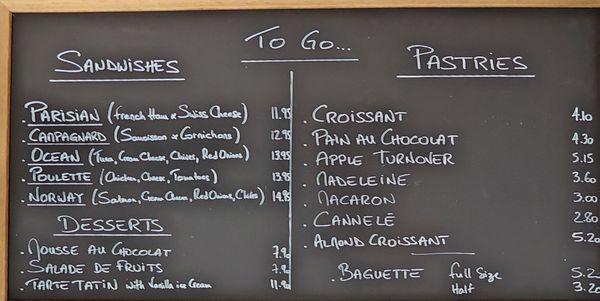 To Go...
SANDWISHES
. PARISIAN (french Ham & Swiss Cheese) 11.95
. CAMPAGNARD (Saucisson & Cornichons) 12.95
. OCEAN (Tuna, Cream Cheese, Chives, Red Onions) 13.95
. POULETTE (Chicken, Cheese, Tomatoes) 13.95
. NORWAY (Salmon, Cream Cheese, Red Onions, Chives) 14.95
DESSERTS
. MOUSSE AU CHOCOLAT 7.90
. SALADE DE FRUITS 7.90
. TARTE TATIN with Vanilla ice Cream 11.90
PASTRIES
. CROISSANT 4.10
. PAIN AU CHOCOLAT 4.30
. APPLE TURNOVER 5.15
. MADELEINE 3.60
. MACARON 3.00
. CANNELÉ 2.80
. ALMOND CROISSANT 5.20
. BAGUETTE full Size 5.2
Half 3.20